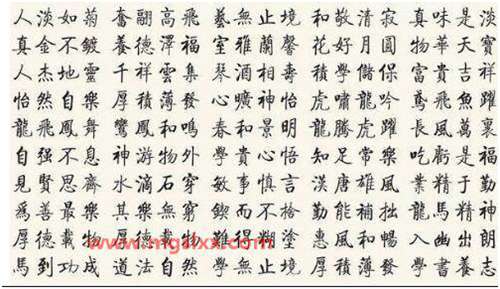 人淡如菊 奮翮高飛 藝無止境 和敬清寂 真味是淡
真金不鍍 養德澤福 室雅蘭馨 花好月圓 物華天寶
人杰地靈 千祥雲集 琴酒相壽 積學儲保 富貴吉祥
怡然自樂 厚積薄發 心曠神怡 虎嘯龍吟 鳶飛魚躍
龍飛鳳舞 鸞鳳和鳴 春和景明 龍騰虎躍 長風萬裏
自强不息 神游物外 學貴心悟 知足常樂 吃虧是福
見賢思齊 水滴石穿 敏事慎言 漢唐雄風 業精于勤
為善最樂 其樂無窮 鍥而不捨 勤能補拙 龍馬精神
厚德載物 難得糊塗 惠風和暢 入幽出朗
www.mgzixx.com
馬到功成 道法自然 學無止境 厚積薄發 學書養志